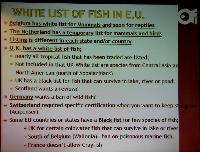 WHITE LIST OF FISH IN E.U.
Belgium has white list for Mammals and soon for reptiles
The Netherland has a temporary list for mammals and birds
Listing is different in each state and/or country
U.K. has a white list of fish;
nearly all tropical fish that has been traded are listed;
Not included in that UK White list are species from Central Asia and
North American (north of Appalachians)
UK has a black list for fish that can survive in lake, river or pond.
Scotland wants a review!
Germany wants a ban of wild fish!
Switzerland required specific certification when you want to keep
(Acipenser)
Some EU countries or states have a Black list for few species of fish;
UK for certain coldwater fish that can survive in lake or river
South of Belgium (Wallonia)- ban on poisonous marine fish.
France doesn't allow Crayfish